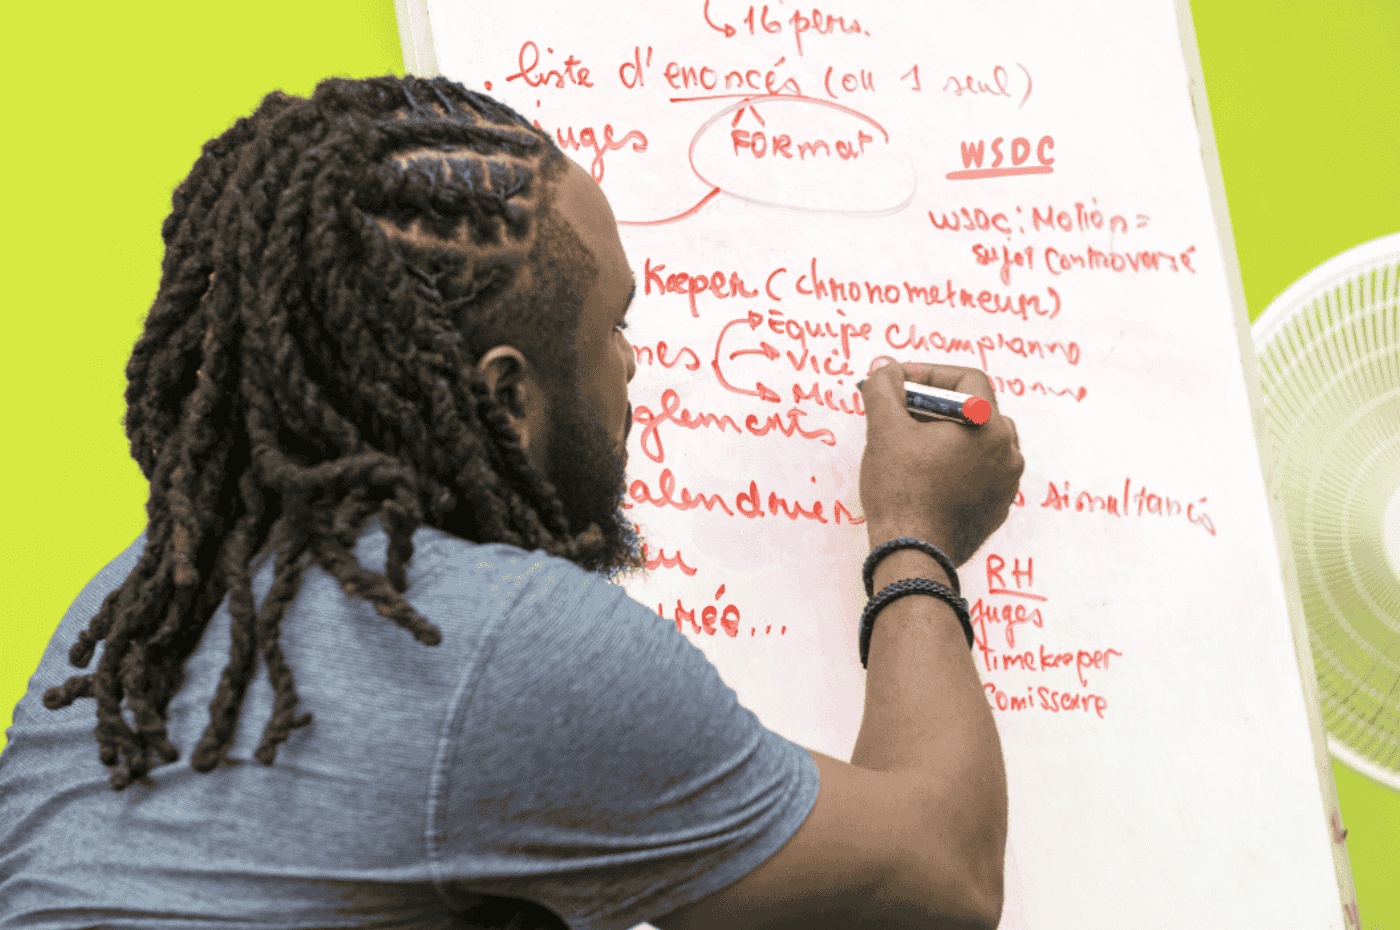 16 pers.
. liste d'enoncés (ou 1 seul)
juges
Format
WSDC
WSDC : Motion =
sujet controversé
Keeper (chronometreur)
nes
Équipe championne
Vice
onne
Meil
glements
alendrier
simultanés
eu
RH
juges
mée...
timekeeper
Comissaire